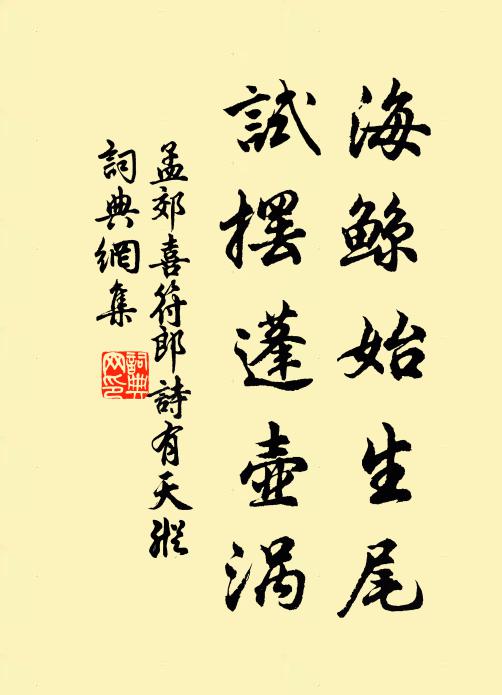 海鲸始生尾
試擺蓬壺涡
孟郊喜符郎詩有天縱
詞典網集